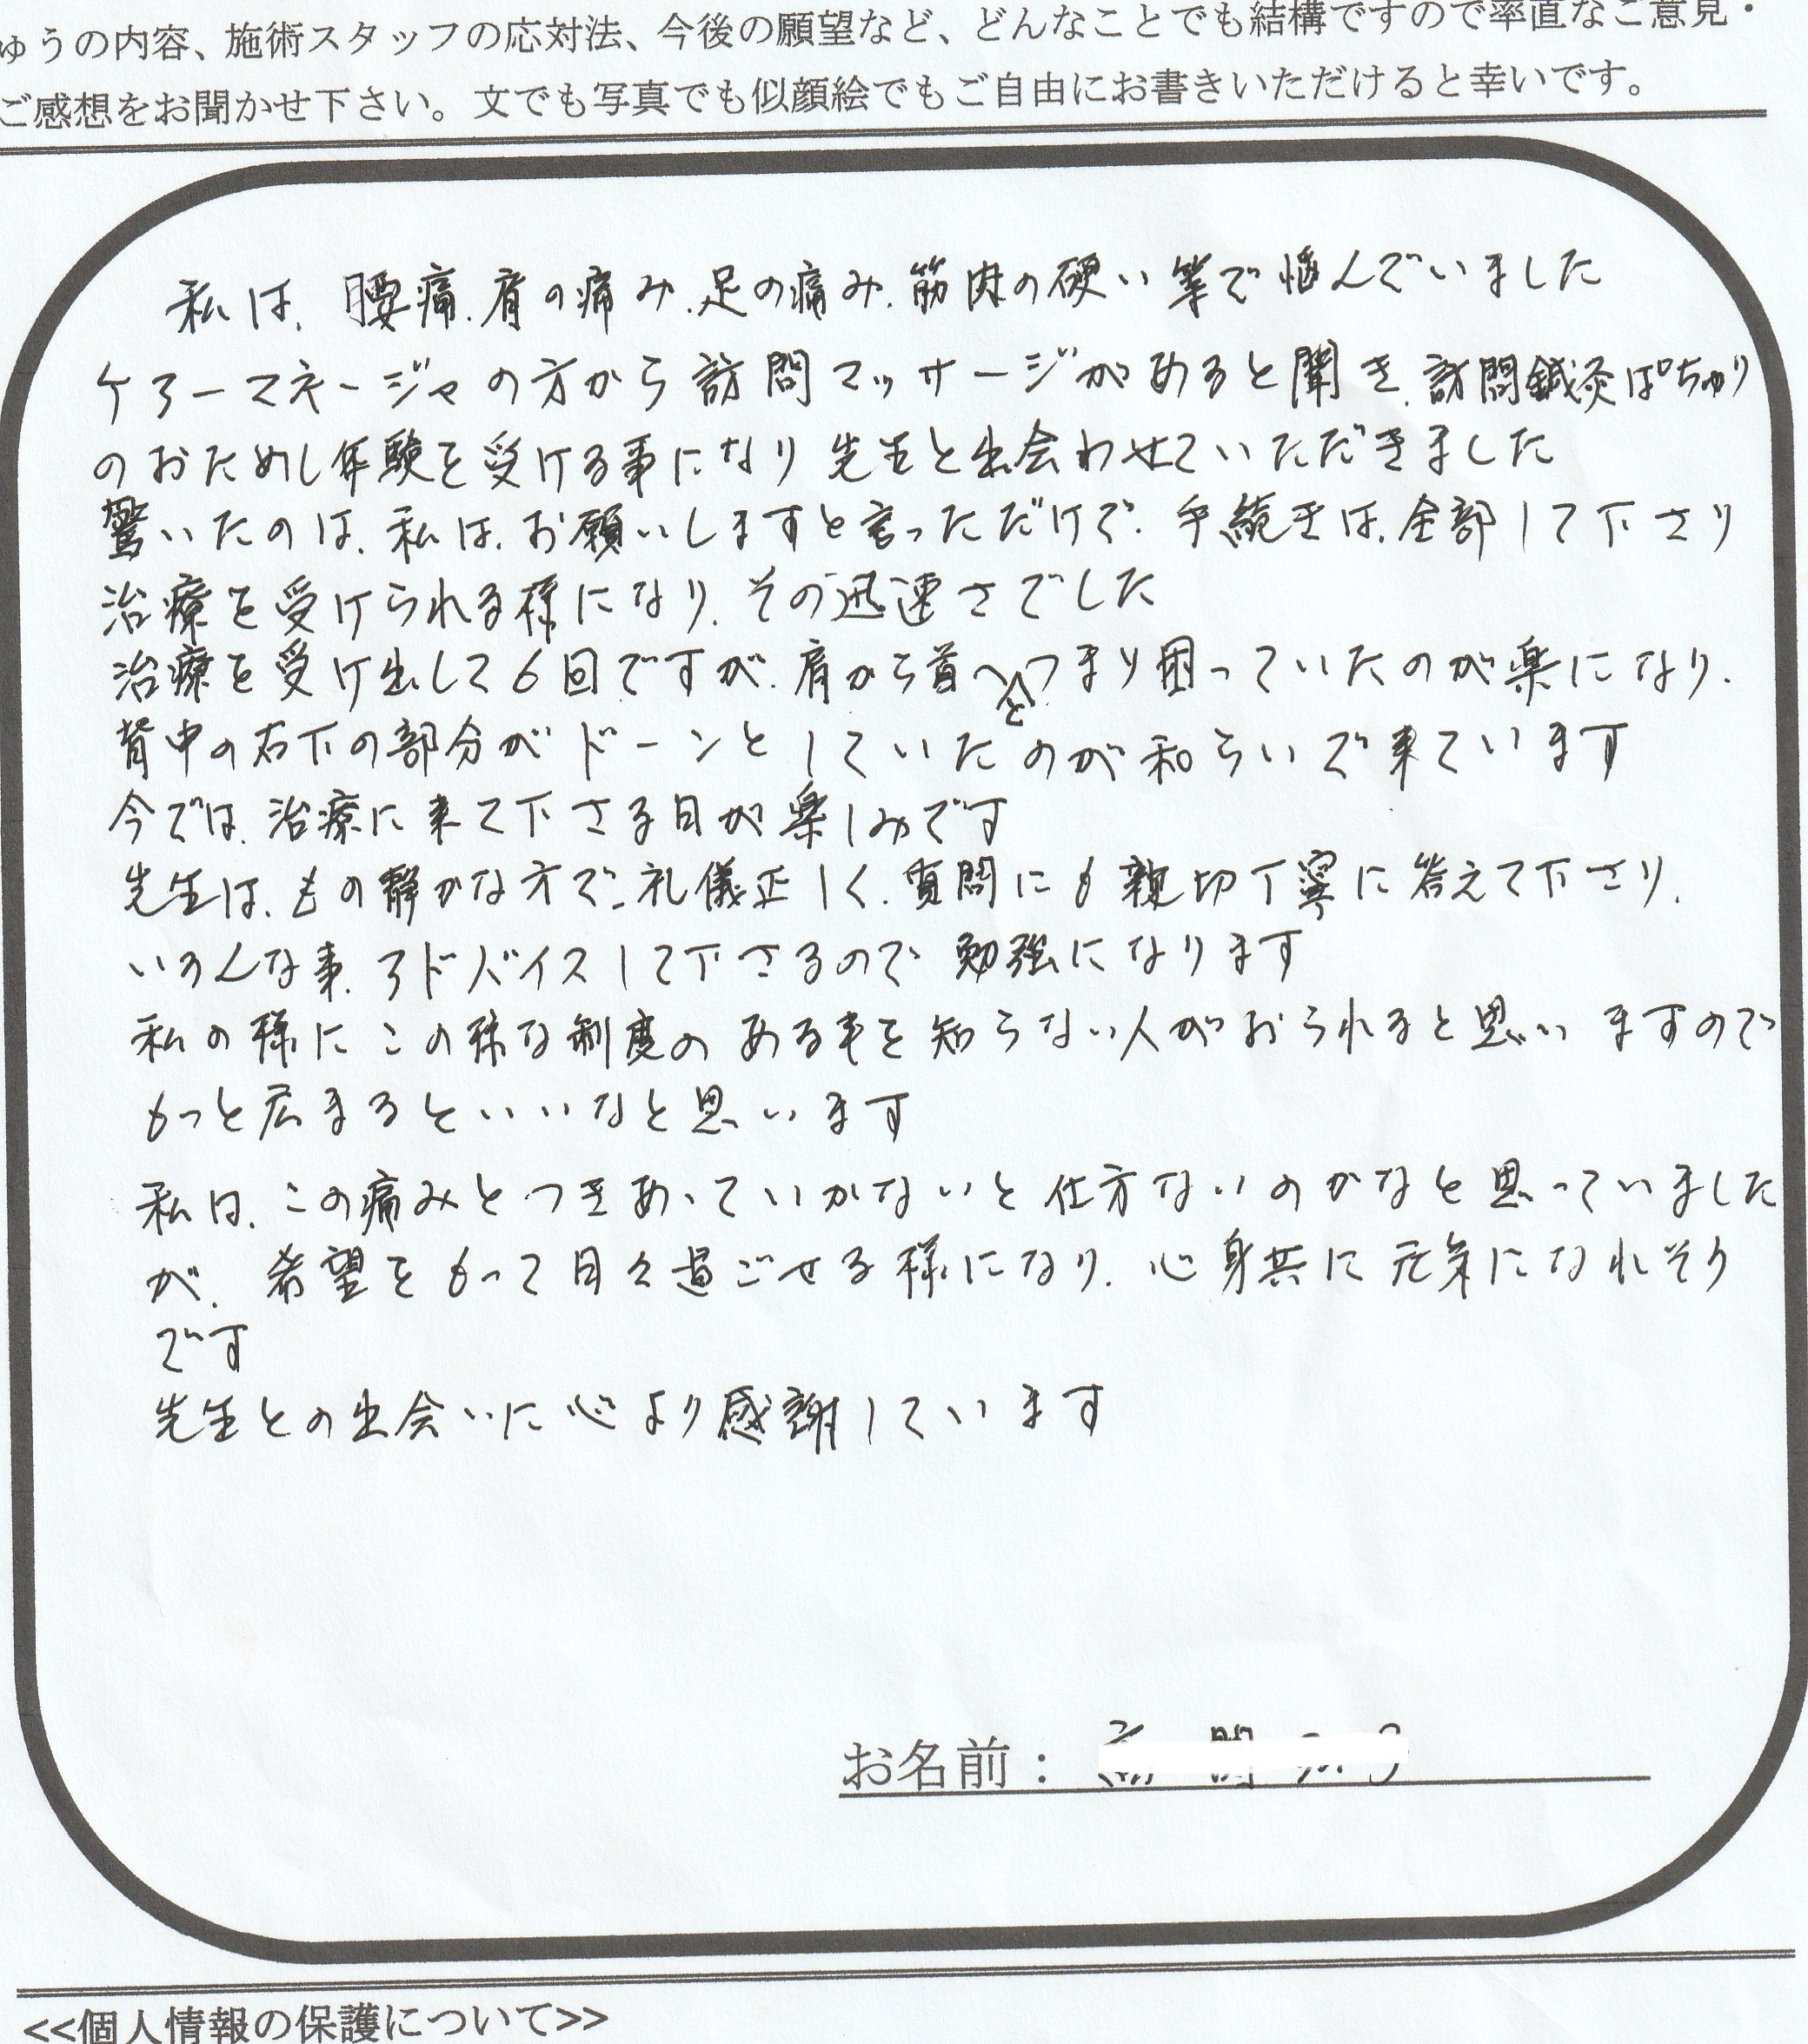 ゅうの内容、施術スタッフの応対法、今後の願望など、どんなことでも結構ですので率直なご意見・
ご感想をお聞かせ下さい。文でも写真でも似顔絵でもご自由にお書きいただけると幸いです。
私は、腰痛、肩の痛み、足の痛み、筋肉の硬い等で悩んでいました
ケアーマネージャの方から訪問マッサージがあると聞き、訪問鍼灸ぱちゅり
のおためし体験を受ける事になり先生と出会わせていただきました
驚いたのは、私は、お願いしますと言っただけで、手続きは、全部して下さり
治療を受けられる様になり、その迅速さでした
治療を受け出して6回ですが、肩から首へとつまり困っていたのが楽になり、
背中の右下の部分がドーンとしていたのが和らいで来ています
今では、治療に来て下さる日が楽しみです
先生は、もの静かな方で、礼儀正しく、質問にも親切丁寧に答えて下さり、
いろんな事、アドバイスして下さるので勉強になります
私の様にこの様な制度のある事を知らない人がおられると思いますので
もっと広まるといいなと思います
私は、この痛みとつきあっていかないと仕方ないのかなと思っていました
が、希望をもって日々過ごせる様になり、心身共に元気になれそう
です
先生との出会いに心より感謝しています
お名前：
<<個人情報の保護について>>